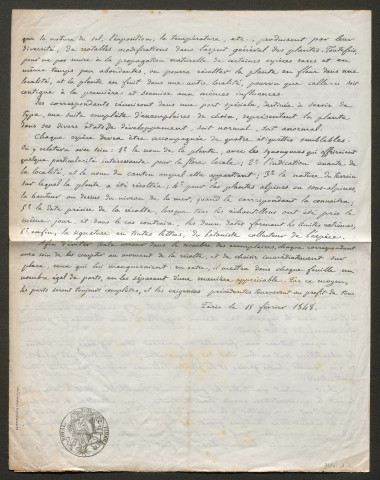 que la nature du sol, l'exposition, la température, etc., produisent par leur
diversité, de notables modifications dans l'aspect général des plantes. Toutefois,
pour ne pas nuire à la propagation naturelle de certaines espèces rares et en
même temps peu abondantes, on pourra récolter la plante en fleur dans une
localité, et la plante en fruit dans une autre localité, pourvu que celle-ci soit
contiguë à la première et soumise aux mêmes influences.
Les correspondants réuniront dans une part spéciale, destinée à servir de
type, une suite complète d'exemplaires de choix, représentant la plante
dans ses divers états de développement, soit normal, soit anormal.
Chaque espèce devra être accompagnée de quatre étiquettes semblables.
On y relatera avec soin: 1° le nom de la plante, avec les synonymes qui offriraient
quelque particularité intéressante pour la flore locale; 2° l'indication exacte de
la localité, et le nom du canton auquel elle appartient; 3° la nature du terrain
sur lequel la plante a été récoltée; 4° pour les plantes alpines ou sous-alpines,
la hauteur au dessus du niveau de la mer, quand le correspondant la connaîtra;
5° la date précise de la récolte, lorsque tous les échantillons ont été pris le
même jour, et dans le cas contraire, les deux dates formant les limites extrêmes;
6° enfin, la signature en toutes lettres, du botaniste collecteur de l'espèce.
Afin d'éviter toute erreur dans le nombre des exemplaires, chaque correspondant
aura soin de les compter au moment de la récolte, et de choisir immédiatement sur
place, ceux qui lui manqueraient; en outre, il mettra dans chaque feuille un
nombre égal de parts, en les séparant d'une manière appréciable. Par ce moyen,
les parts seront toujours complètes, et les exigences précédentes tourneront au profit de tous.
Paris le 15 février 1848.